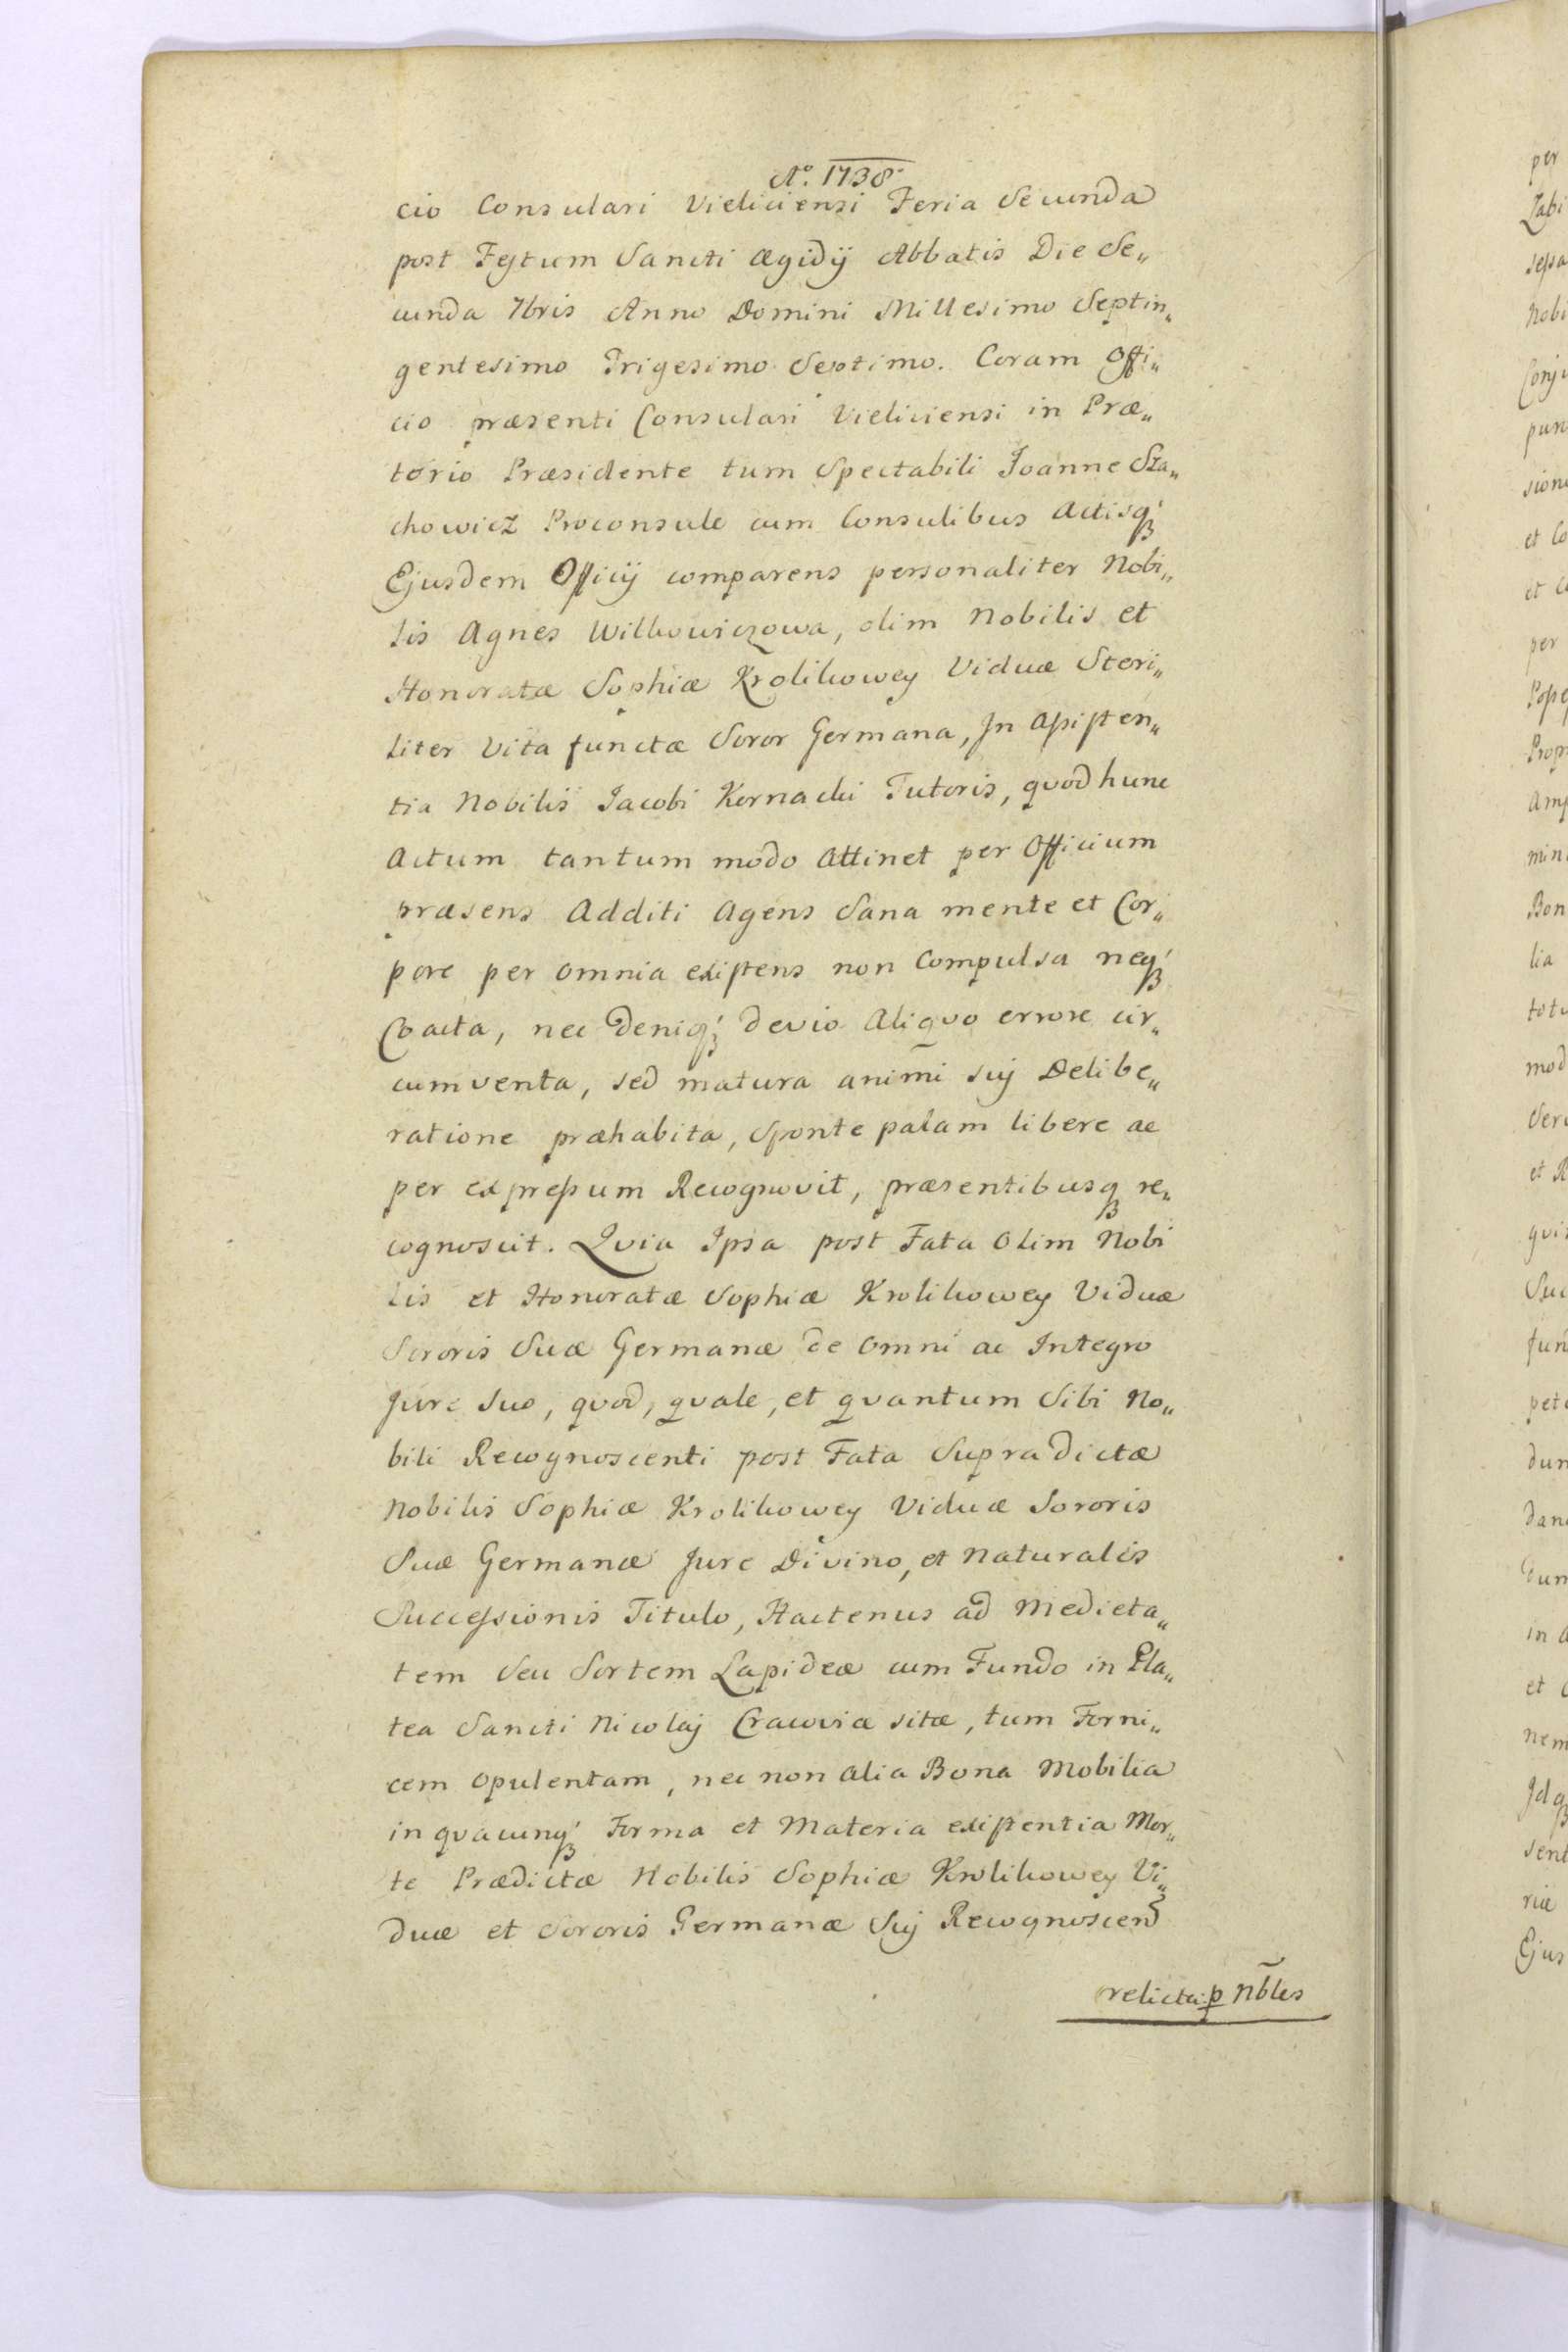 Aº. 1738.
cio Consulari Vieliciensi Feria Secunda
post Festum Sancti Ægidÿ Abbatis Die Se„
cunda 7bris Anno Domini Millesimo Septin„
gentesimo Trigesimo Septimo. Coram Offi„
cio præsenti Consulari Vieliciensi in Præ„
torio Præsidente tum Spectabili Joanne Sta„
chowicz Proconsule cum Consulibus Actisq́
Ejusdem Officÿ comparens personaliter Nobi„
lis Agnes Wilkowiczowa, olim Nobilis et
Honoratæ Sophiæ Krolikowey Viduæ Steri„
liter Vita functæ Soror Germana, In Assisten„
tia Nobilis Jacobi Kornacki Tutoris, quod hunc
Actum tantum modo Attinet per Officium
præsens Additi Agens Sana mente et Cor„
pore per omnia existens non Compulsa neq́
Coacta, nec Deniq́ devio Aliquo errore cir„
cumventa, sed matura animi sui Delibe„
ratione præhabita, Sponte palam libere ac
per expressum Recognovit, præsentibusq re„
cognoscit. Quia Ipsa post Fata Olim Nobi
lis et Honoratæ Sophiæ Krolikowey Viduæ
Sororis Suæ Germanæ de Omni ac Integro
Jure Suo, quod, quale, et quantum Sibi No„
bili Recognoscenti post Fata Supradictæ
Nobilis Sophiæ Krolikowey Viduæ Sororis
Suæ Germanæ Jure Divino, et Naturalis
Successionis Titulo, Hactenus ad Medieta„
tem Seu Sortem Lapideæ cum Fundo in Pla„
tea Sancti Nicolaj Cracoviæ sitæ, tum Forni„
cem Opulentam, nec non alia Bona Mobilia
in quacunq́ Forma et Materia existentia Mor„
te Prædictæ Nobilis Sophiæ Krolikowey Vi„
duæ et Sororis Germanæ Suj Recognoscen
relicta: p Nbles
per
Zabi
sessa
Nobi
Conju
pun
sion
et Co
per
Prop
Amp
min
Bon
lia
totu
mod
et R
qui
Suc
fun
pet
dun
dan
in
et
nem
Idq
sent
riæ
Ejus